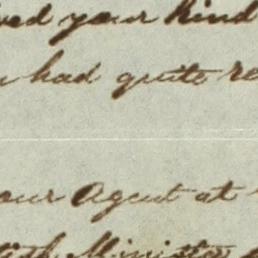 your kind
had quite
our Agent at
Minister